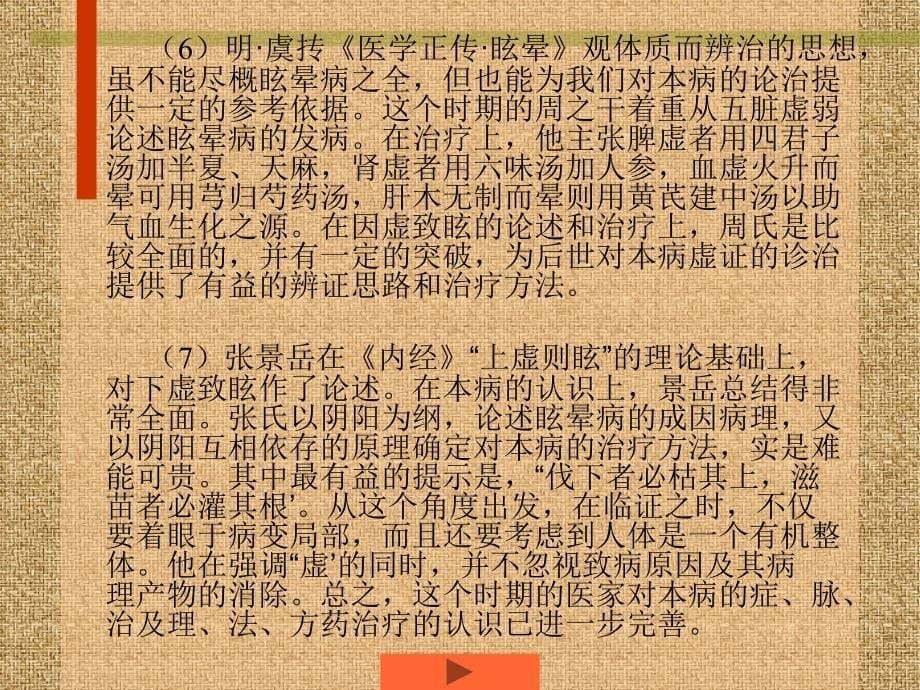 （6）明·虞抟《医学正传·眩晕》观体质而辨治的思想，
虽不能尽概眩晕病之全，但也能为我们对本病的论治提
供一定的参考依据。这个时期的周之干着重从五脏虚弱
论述眩晕病的发病。在治疗上，他主张脾虚者用四君子
汤加半夏、天麻，肾虚者用六味汤加人参，血虚火升而
晕可用芎归芍药汤，肝木无制而晕则用黄芪建中汤以助
气血生化之源。在因虚致眩的论述和治疗上，周氏是比
较全面的，并有一定的突破，为后世对本病虚证的诊治
提供了有益的辨证思路和治疗方法。
（7）张景岳在《内经》“上虚则眩”的理论基础上，
对下虚致眩作了论述。在本病的认识上，景岳总结得非
常全面。张氏以阴阳为纲，论述眩晕病的成因病理，又
以阴阳互相依存的原理确定对本病的治疗方法，实是难
能可贵。其中最有益的提示是，“伐下者必枯其上，滋
苗者必灌其根’。从这个角度出发，在临证之时，不仅
要着眼于病变局部，而且还要考虑到人体是一个有机整
体。他在强调“虚’的同时，并不忽视致病原因及其病
理产物的消除。总之，这个时期的医家对本病的症、脉、
治及理、法、方药治疗的认识已进一步完善。